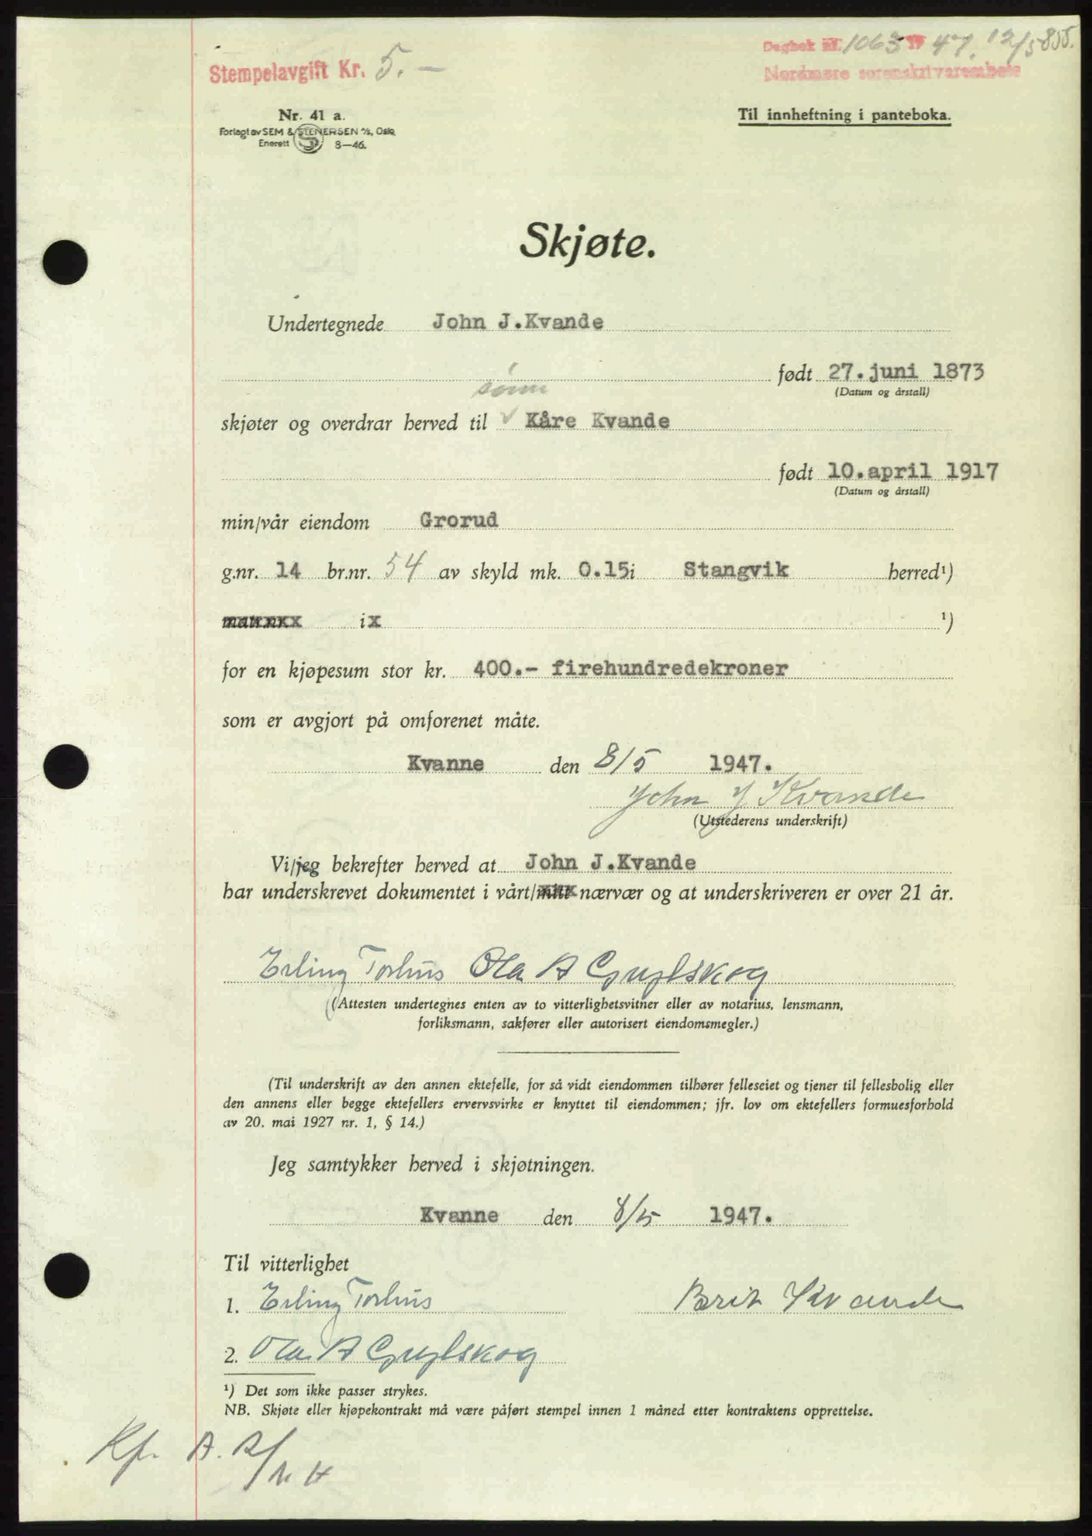 Stempelavgift Kr. 5.-
Dagbok nr. 1063 19 47. 12/5 855.
Nordmøre sorenskriverembete
Nr. 41 a.
Forlagt av SEM & STENERSEN A/S, Oslo
Enerett S 8-46.
Til innheftning i panteboka.
Skjøte.
Undertegnede John J.Kvande
født 27.juni 1873
(Datum og årstall)
sønn
skjøter og overdrar herved til ✓ Kåre Kvande
født 10.april 1917
(Datum og årstall)
min/vår eiendom Grorud
g.nr. 14 br.nr. 54 av skyld mk. 0.15i Stangvik herred¹)
ix ¹)
for en kjøpesum stor kr. 400.- firehundredekroner
som er avgjort på omforenet måte.
Kvanne den 8/5 1947.
John J Kvande
(Utstederens underskrift)
Vi/jeg bekrefter herved at John J.Kvande
har underskrevet dokumentet i vårt/ nærvær og at underskriveren er over 21 år.
Erling Torhus Ola A
(Attesten undertegnes enten av to vitterlighetsvitner eller av notarius, lensmann,
forliksmann, sakfører eller autorisert eiendomsmegler.)
(Til underskrift av den annen ektefelle, for så vidt eiendommen tilhører felleseiet og tjener til fellesbolig eller
den annens eller begge ektefellers ervervsvirke er knyttet til eiendommen; jfr. lov om ektefellers formuesforhold
av 20. mai 1927 nr. 1, § 14.)
Jeg samtykker herved i skjøtningen.
Kvanne den 8/5 1947.
Til vitterlighet
1. Erling Torhus Brit Kvande
2. Ola A
¹) Det som ikke passer strykes.
NB. Skjøte eller kjøpekontrakt må være påført stempel innen 1 måned etter kontraktens opprettelse.
Kfr.